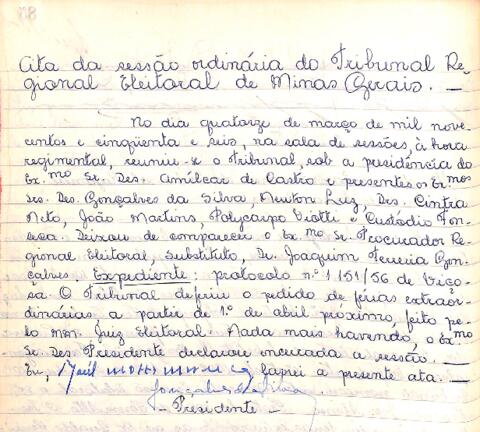 Ata da sessão ordinária do Tribunal Re-
gional Eleitoral de Minas Gerais. —
No dia quatorze de março de mil nove-
centos e cinqüenta e seis, na sala de sessões, à hora
regimental, reuniu-se o Tribunal, sob a presidência do
Ex.mo Sr. Des. Amílcar de Castro e presentes os Ex.mos
Srs. Des. Gonçalves da Silva, Newton Luz, Des. Cintra
Neto, João Martins, Polycarpo Viotti e Custódio Fon-
seca. Deixou de comparecer o Ex.mo Sr. Procurador Re-
gional Eleitoral, Substituto, Dr. Joaquim Ferreira Gon-
çalves. Expediente: protocolo n.º 1151/56 de Viço-
sa. O Tribunal deferiu o pedido de férias extraor-
dinárias, a partir de 1.º de abril próximo, feito pe-
lo MM. Juiz Eleitoral. Nada mais havendo, o Ex.mo
Sr. Des. Presidente declarou encerrada a sessão. —
Eu, lavrei a presente ata. —
Gonçalves da Silva
- Presidente -